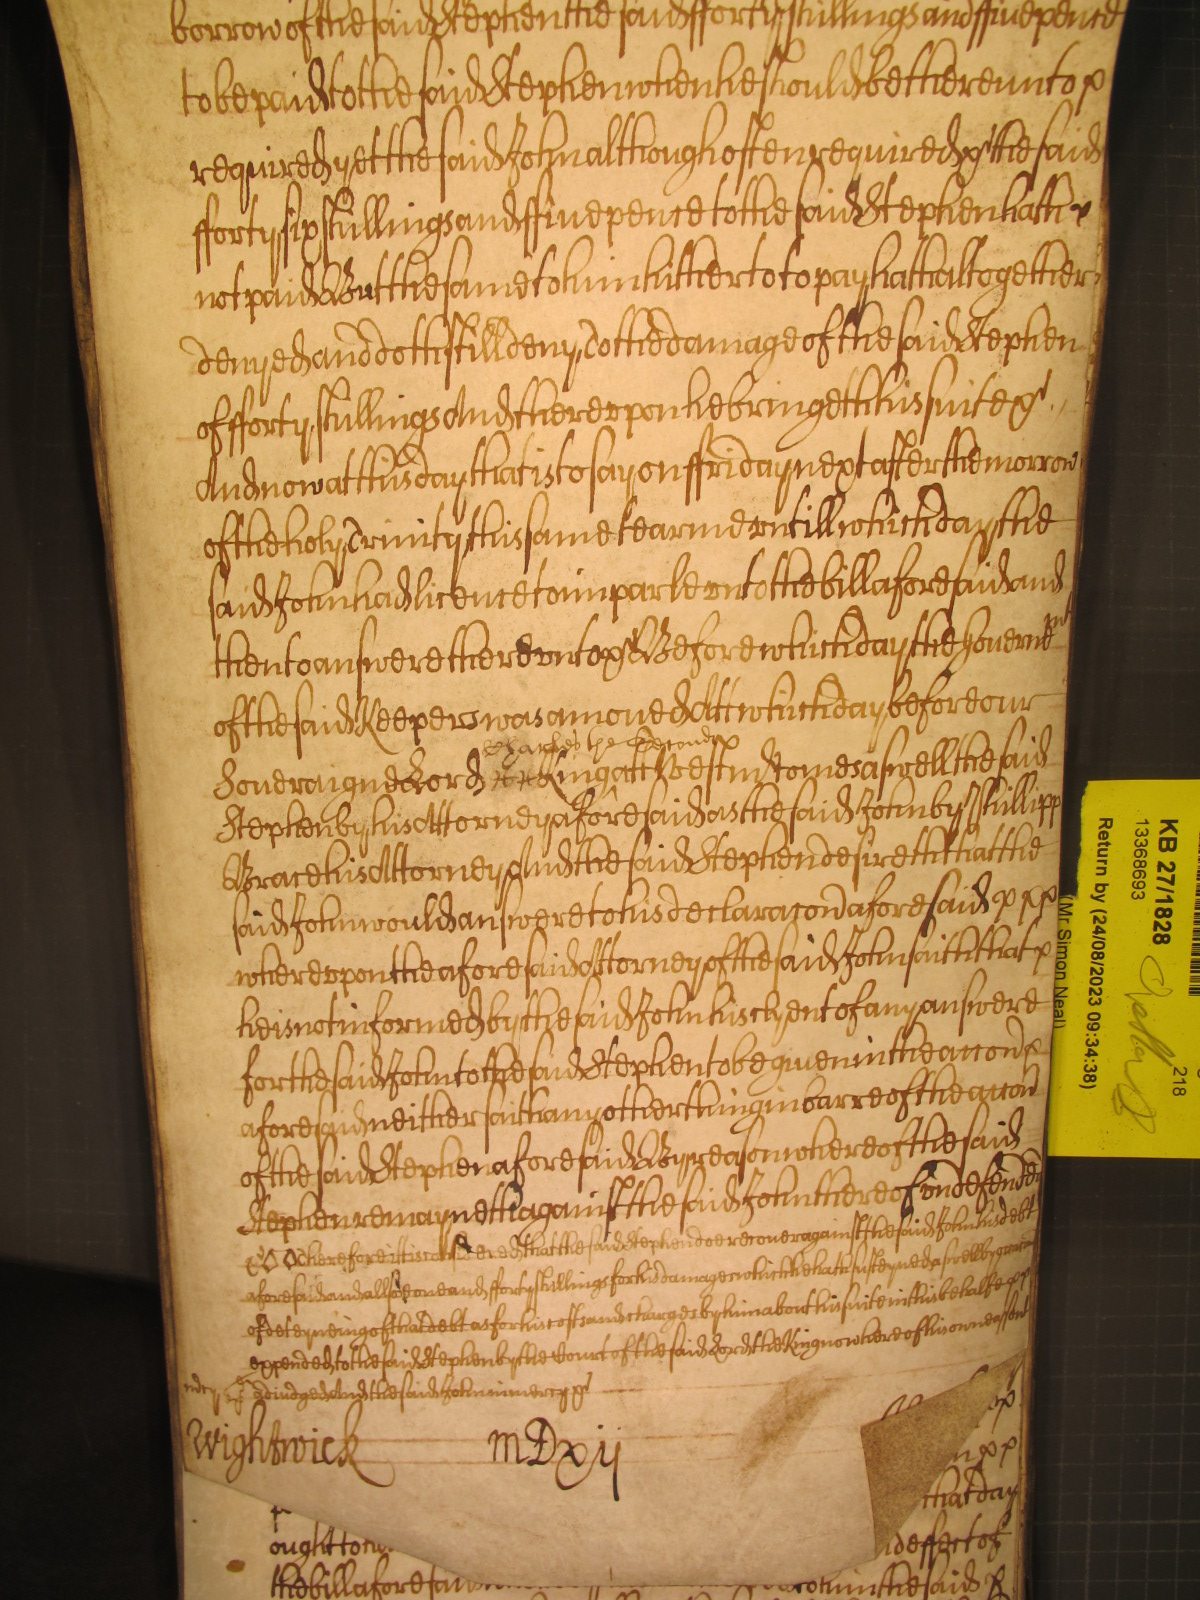 borrow of the said Stephen the said fforty shillings and ffivepence
to be paid to the said Stephen when he should be thereunto
required yet the said John although often required &c the said
fforty six shillings and ffivepence to the said Stephen hath
not paid But the same to him hitherto to pay hath altogether
denyed and doth still deny To the damage of the said Stephen
of fforty shillings And thereupon he bringeth his suite &c
And now at this day that is to say on ffriday next after the morrow
of the holy Trinity this same tearme vntill which day the
said John had licence to imparle vnto the bill aforesaid and
then to answere therevnto &c Before which day the Governemt
of the said Keepers was amoued Att which day before our
Charles the Second
Soueraigne Lord King att Westm comes aswell the said
Stephen by his Attorney aforesaid as the said John by Phillipp
Brace his Attorney And the said Stephen desireth that the
said John would answere to his declaracon aforesaid
wherevpon the aforesaid Attorney of the said John saith that
he is not informed by the said John his clyent of any answere
for the said John to the said Stephen to be given in the accon
aforesaid neither saith any other thing in barre of the accon
of the said Stephen aforesaid By reason whereof the said
Stephen remayneth against the said John thereof vndefended
Wherefore itt is considered that the said Stephen doe recouer against the said John his debt
aforesaid and allsoe one and fforty shillings for his damages which he hath susteyned aswell by
of deteyneing of that debt as for his costs and charges by him about his suite in this behalfe
expended to the said Stephen by the Court of the said Lord the King now here of his owne assent
mcy adiudged And the said John in mercy &c
Wightwick MDxij
that day
ought to
and effect of
the bill aforesaid to him the said
KB 27/1828
13368693
218
Return by (24/08/2023 09:34:38)
(Mr Simon Neal)